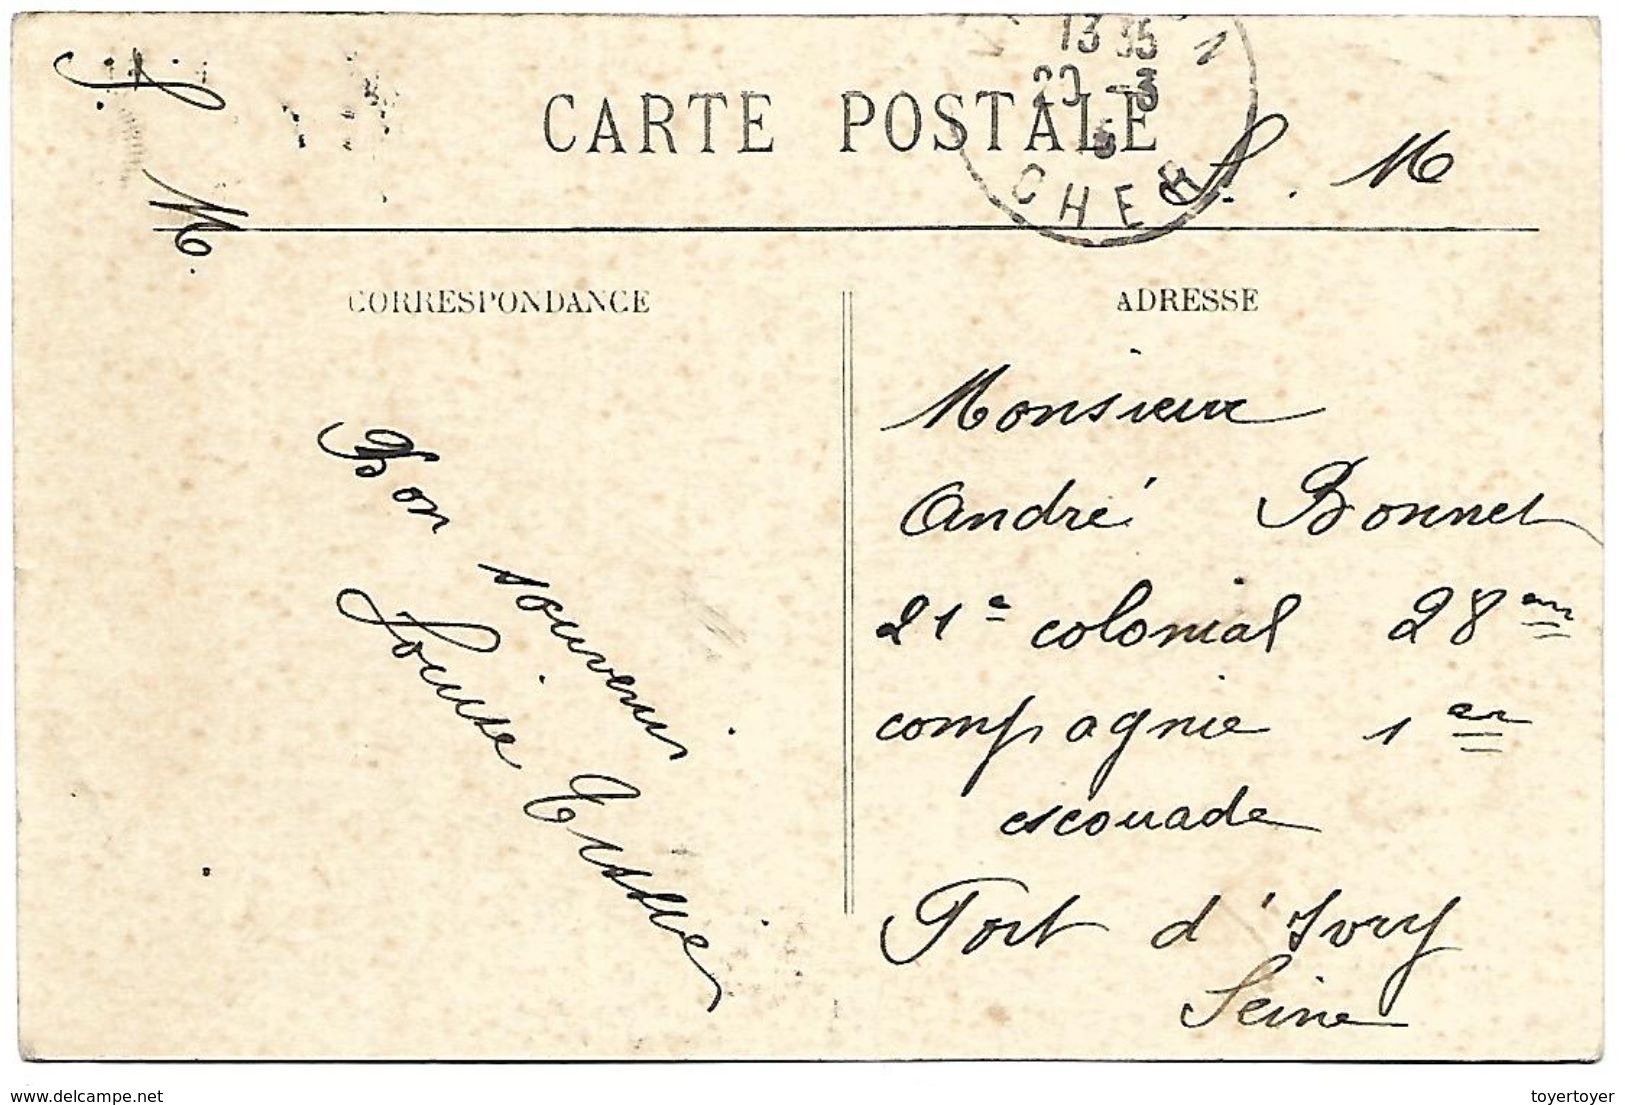 13 35
20 - 3
CHER
CARTE POSTALE
S. M
S. M.
CORRESPONDANCE
ADRESSE
Bon souvenir
Louise Tissier
Monsieur
André Bonnet
21e colonial 28em
compagnie 1er
escouade
Fort d'Ivry
Seine
www.delcampe.net
toyertoyer